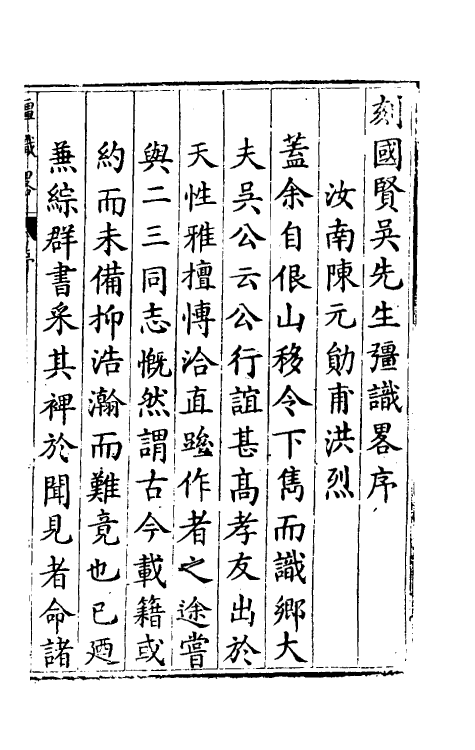 刻國賢吳先生彊識畧序
汝南陳元勛甫洪烈
蓋余自佷山移令下雋而識鄉大
夫吳公云公行誼甚髙孝友出於
天性雅擅慱洽直躡作者之途嘗
與二三同志慨然謂古今載籍或
約而未備抑浩瀚而難竟也已廼
蕪綜群書采其裨於聞見者命諸
彊識畧
序